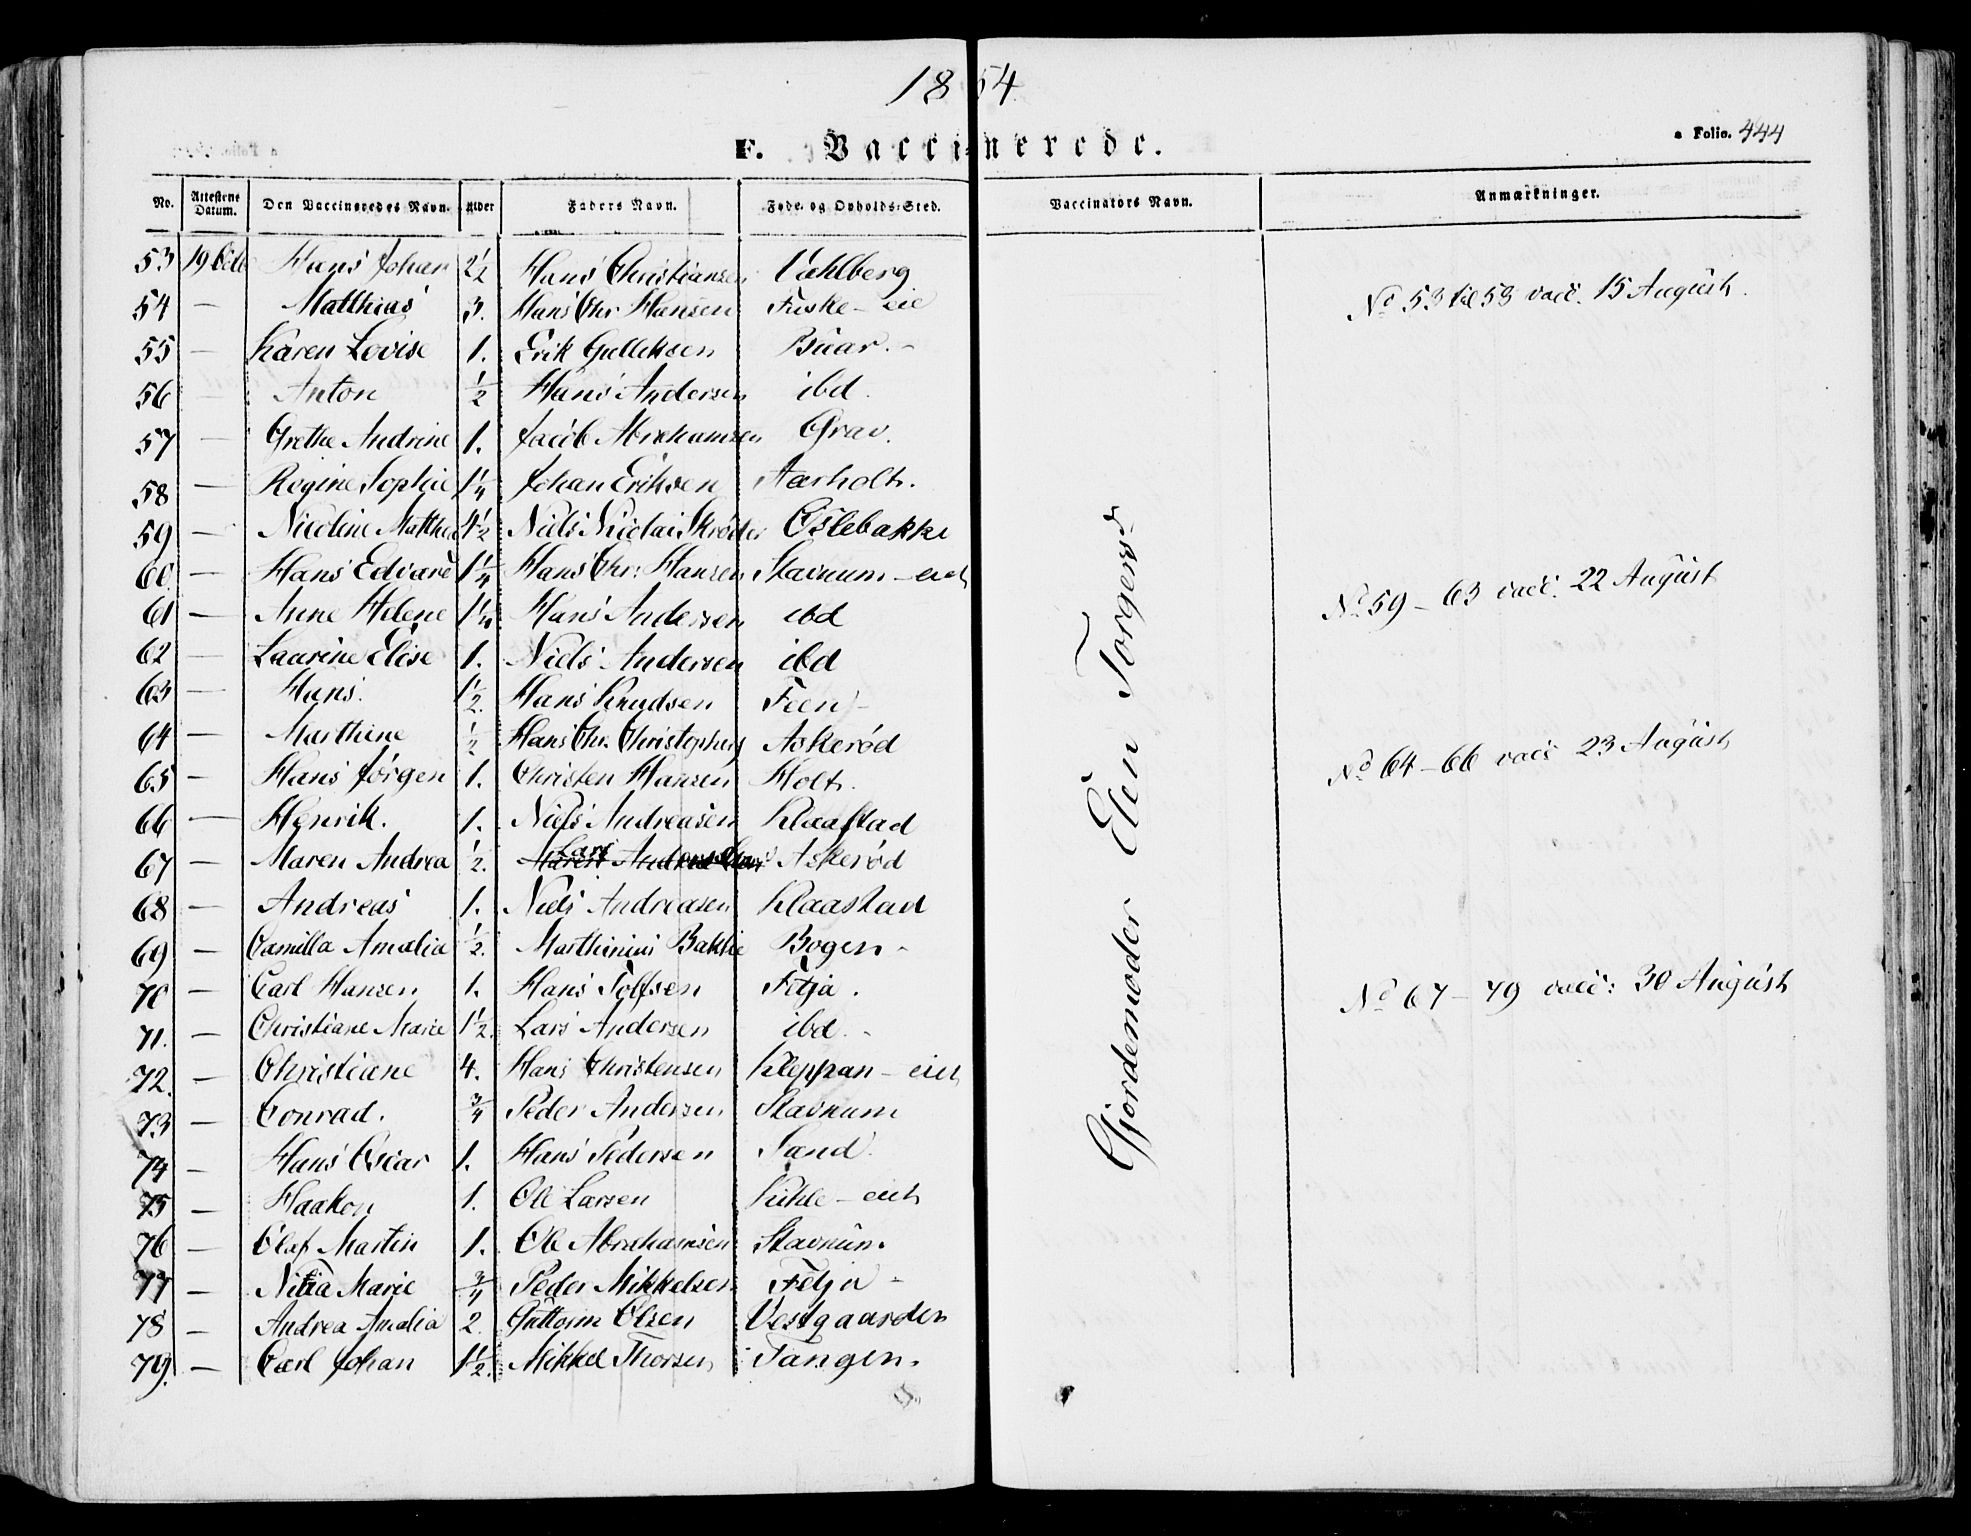 1854
F. Vaccinerede.
a Folio. 444
No. Attestens Datum. Den Vaccineredes Navn. Alder Faders Navn. Føde- og Opholds-Sted. Vaccinators Navn. Anmærkninger.
53 19 Hans Johan 2 1/2 Hans Christiansen Vahlberg
No 53 til 58 vacc. 15 August.
54 — Matthias 3. Hans Chr. Hansen Fuske-eie
55 — Karen Lovise 1. Erik Gulleksen Buar.-
56 — Anton 1/2 Hans Andersen ibd.
57 — Grethe Andrine 1. Jacob Abrahamsen Grav.
58 — Regine Sophie 1 1/4 Johan Eriksen Aarholt.
59 — Nicoline Mathea 4 1/2 Niels Nicolai Skrøder Oslebakke
60 — Hans Edvard 1 1/4 Hans Chr: Hansen Stavnum-eiet
No 59 - 63 vacc. 22 August
61 — Anne Helene 1 1/4 Hans Andersen ibd
62 — Laurine Elise 1. Niels Andersen ibd
63 — Hans. 1 1/2. Hans Knudsen Feen-
64 — Marthine 1/2 Hans Chr. Christophers Askerød
No 64 - 66 vacc 23 August
65 — Hans Jørgen 1. Christen Hansen Holt.
66 — Henrik. 1. Niels Andreasen Klaastad
67 — Maren Andrea 1/2. Lars Askerød
68 — Andreas 1. Niels Andreasen Klaastad
69 — Camilla Amalia 1/2. Marthinius Bakke Bogen-
70 — Carl Hansen 1. Hans Tolfsen Fetja.
No 67 - 79 vacc: 30 August
71. — Christiane Marie 1 1/2. Lars Andersen ibd.-
72. — Christiane 4. Hans Christensen Kleppan-eiet
73 — Conrad. 3/4 Peder Andersen Stavnum
74 — Hans Oscar 1. Hans Pedersen Sand.
75 — Haakon 1. Ole Larsen -eiet
76 — Olaf Martin 1. Ole Abrahamsen Stavnum.
77 — Marie 3/4 Peder Mikkelsen Fetja-
78 — Andrea Amalia 2. Guttorm Olsen Vestgaarden
79. — Carl Johan 1 1/2. Mikkel Thorsen Tangen.
Gjordemoder Elen Torgersd.